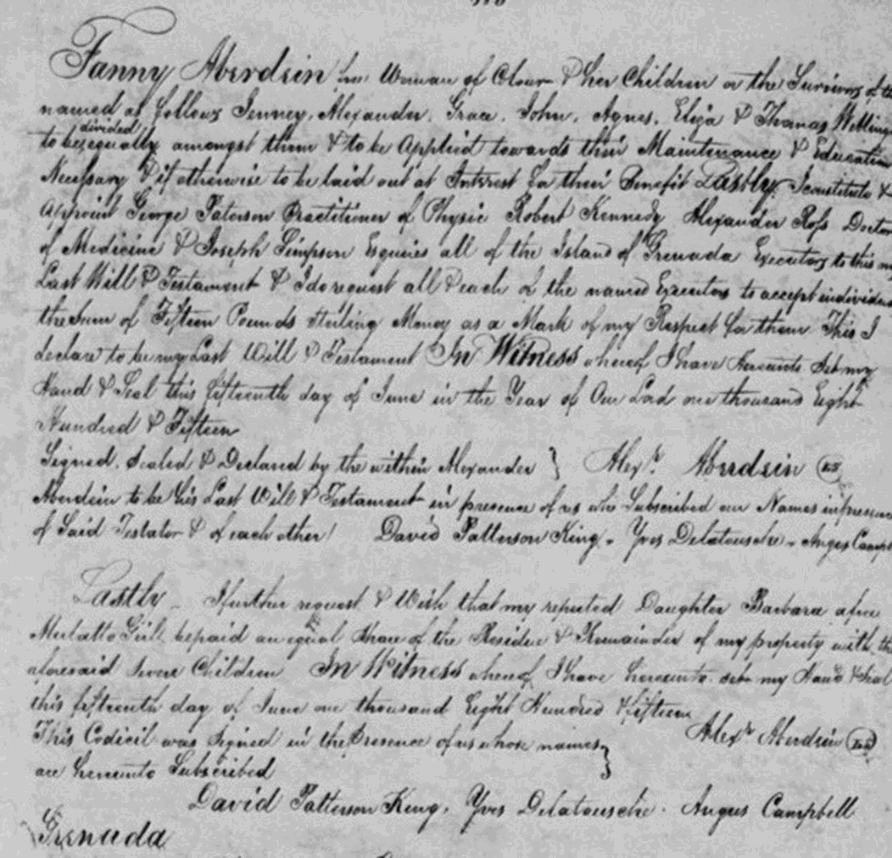 Fanny Aberdein free Woman of Colour & her Children or the Survivors of
named as follows Jenney, Alexander, Grace, John, Agnes, Eliza & Thomas
to be divided equally amongst them & to be Applied towards their Maintenance & Education
Necessary & if otherwise to be laid out at Interest for their Benefit Lastly I constitute &
Appoint George Paterson Practitioner of Physic Robert Kennedy Alexander Ross Doctor
of Medicine & Joseph Simpson Esquires all of the Island of Grenada Executors to this
Last Will & Testament & I do request all & each of the named Executors to accept
the Sum of Fifteen Pounds Sterling Money as a Mark of my Respect for them This I
declare to be my Last Will & Testament In Witness whereof I have hereunto Set my
Hand & Seal this fifteenth day of June in the Year of Our Lord one thousand Eight
Hundred & Fifteen
Signed, Sealed & Declared by the within Alexander } Alexr. Aberdein LS
Aberdein to be his Last Will & Testament in presence of us who Subscribed our Names in
of Said Testator & of each other / David Patterson King, Yves Delatousche, Angus
Lastly I further request & Wish that my reputed Daughter Barbara a free
Mulatto Girl be paid an equal Share of the Residue & Remainder of my property with
aforesaid Seven Children In Witness whereof I have hereunto set my Hand & Seal
this fifteenth day of June one thousand Eight Hundred & fifteen
Alexr. Aberdein LS
This Codicil was Signed in the Presence of us whose names }
are hereunto Subscribed
David Patterson King, Yves Delatousche, Angus Campbell
Grenada